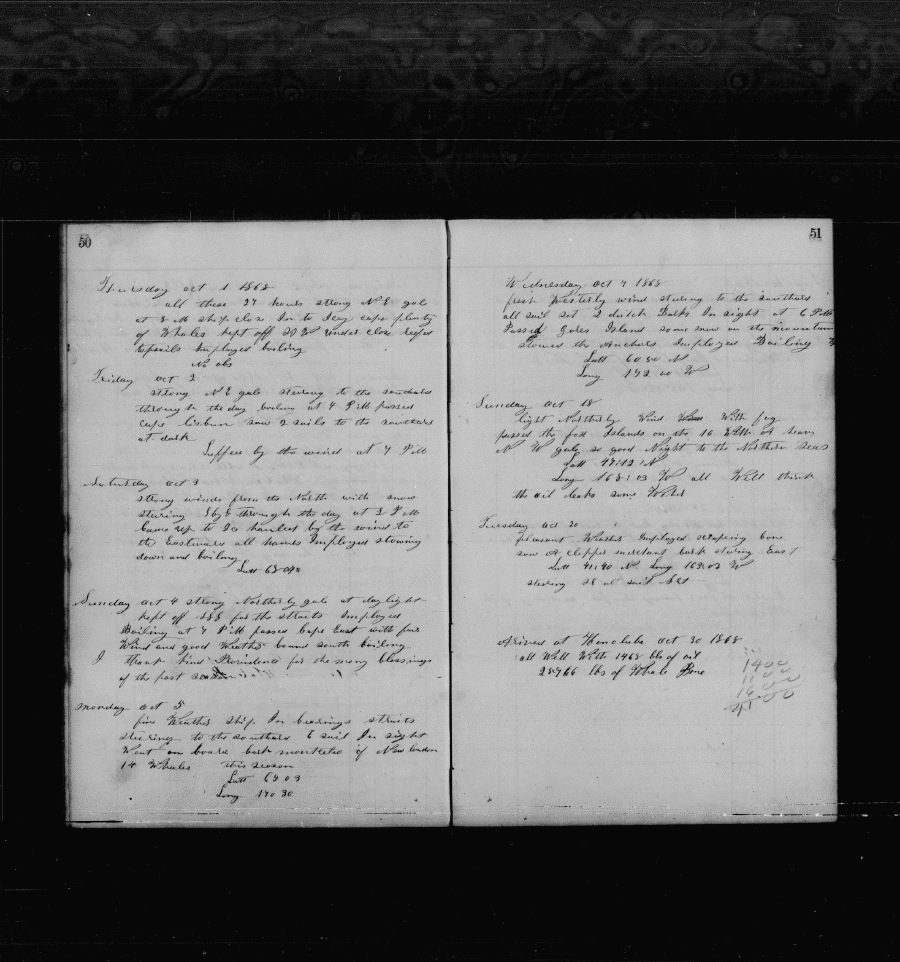 50
Thursday Oct 1 1868
all these 24 hours strong N E gale
at 8 AM ship close In to Icy cape plenty
of Whales kept off S W under close reefed
topsails Imployed boiling
No obs
Friday Oct 2
strong N E gale stering to the southard
through the day boiling at 4 P M passed
cape lisburn saw 2 sails to the southard
at dark
Luffed by the wind at 7 P M
Saturday Oct 3
strong winds from the North with snow
stering S by E through the day at 2 P M
Came up to Ice hauled by the wind to
the Eastward all hands Imployed stowing
down and boiling
Latt 68 04
Sunday Oct 4 strong Northerly gale at daylight
kept off SSE for the straits Imployed
Boiling at 7 P M passed Cape East with fair
Wind and good Weather bound south boiling
I thank kind Providence for the many blessings
of the past season
Monday Oct 5
fine Weather ship In bearings straits
steering to the southard 6 sail In sight
Went on board bark montecello of New london
14 Whales this season
Latt 65 03
Long 170 30
51
Wednesday Oct 7 1868
fresh Westerly wind stering to the southard
all sail set 2 dutch Barks In sight at 6 P M
Passed gores Island some snow on the mountain
stowed the Anchors Imployed Boiling
Latt 60 50 N
Long 172 00 W
Sunday Oct 18
light Northerly Wind With fog
passed the fox Islands on the 16 With a heavy
N W gale so good Night to the Northern seas
Latt 47:12 N
Long 168:03 W all Well think
the oil leaks some Worse
Tuesday Oct 20
pleasant Weather Imployed scrapeing bone
saw A clipper merchant bark stering East
Latt 41:40 N Long 162:03 W
stering SE all sail Set
Arived at Honolulu Oct 30 1868
all Well With 1468 bls of oil
lbs of Whale Bone
1400